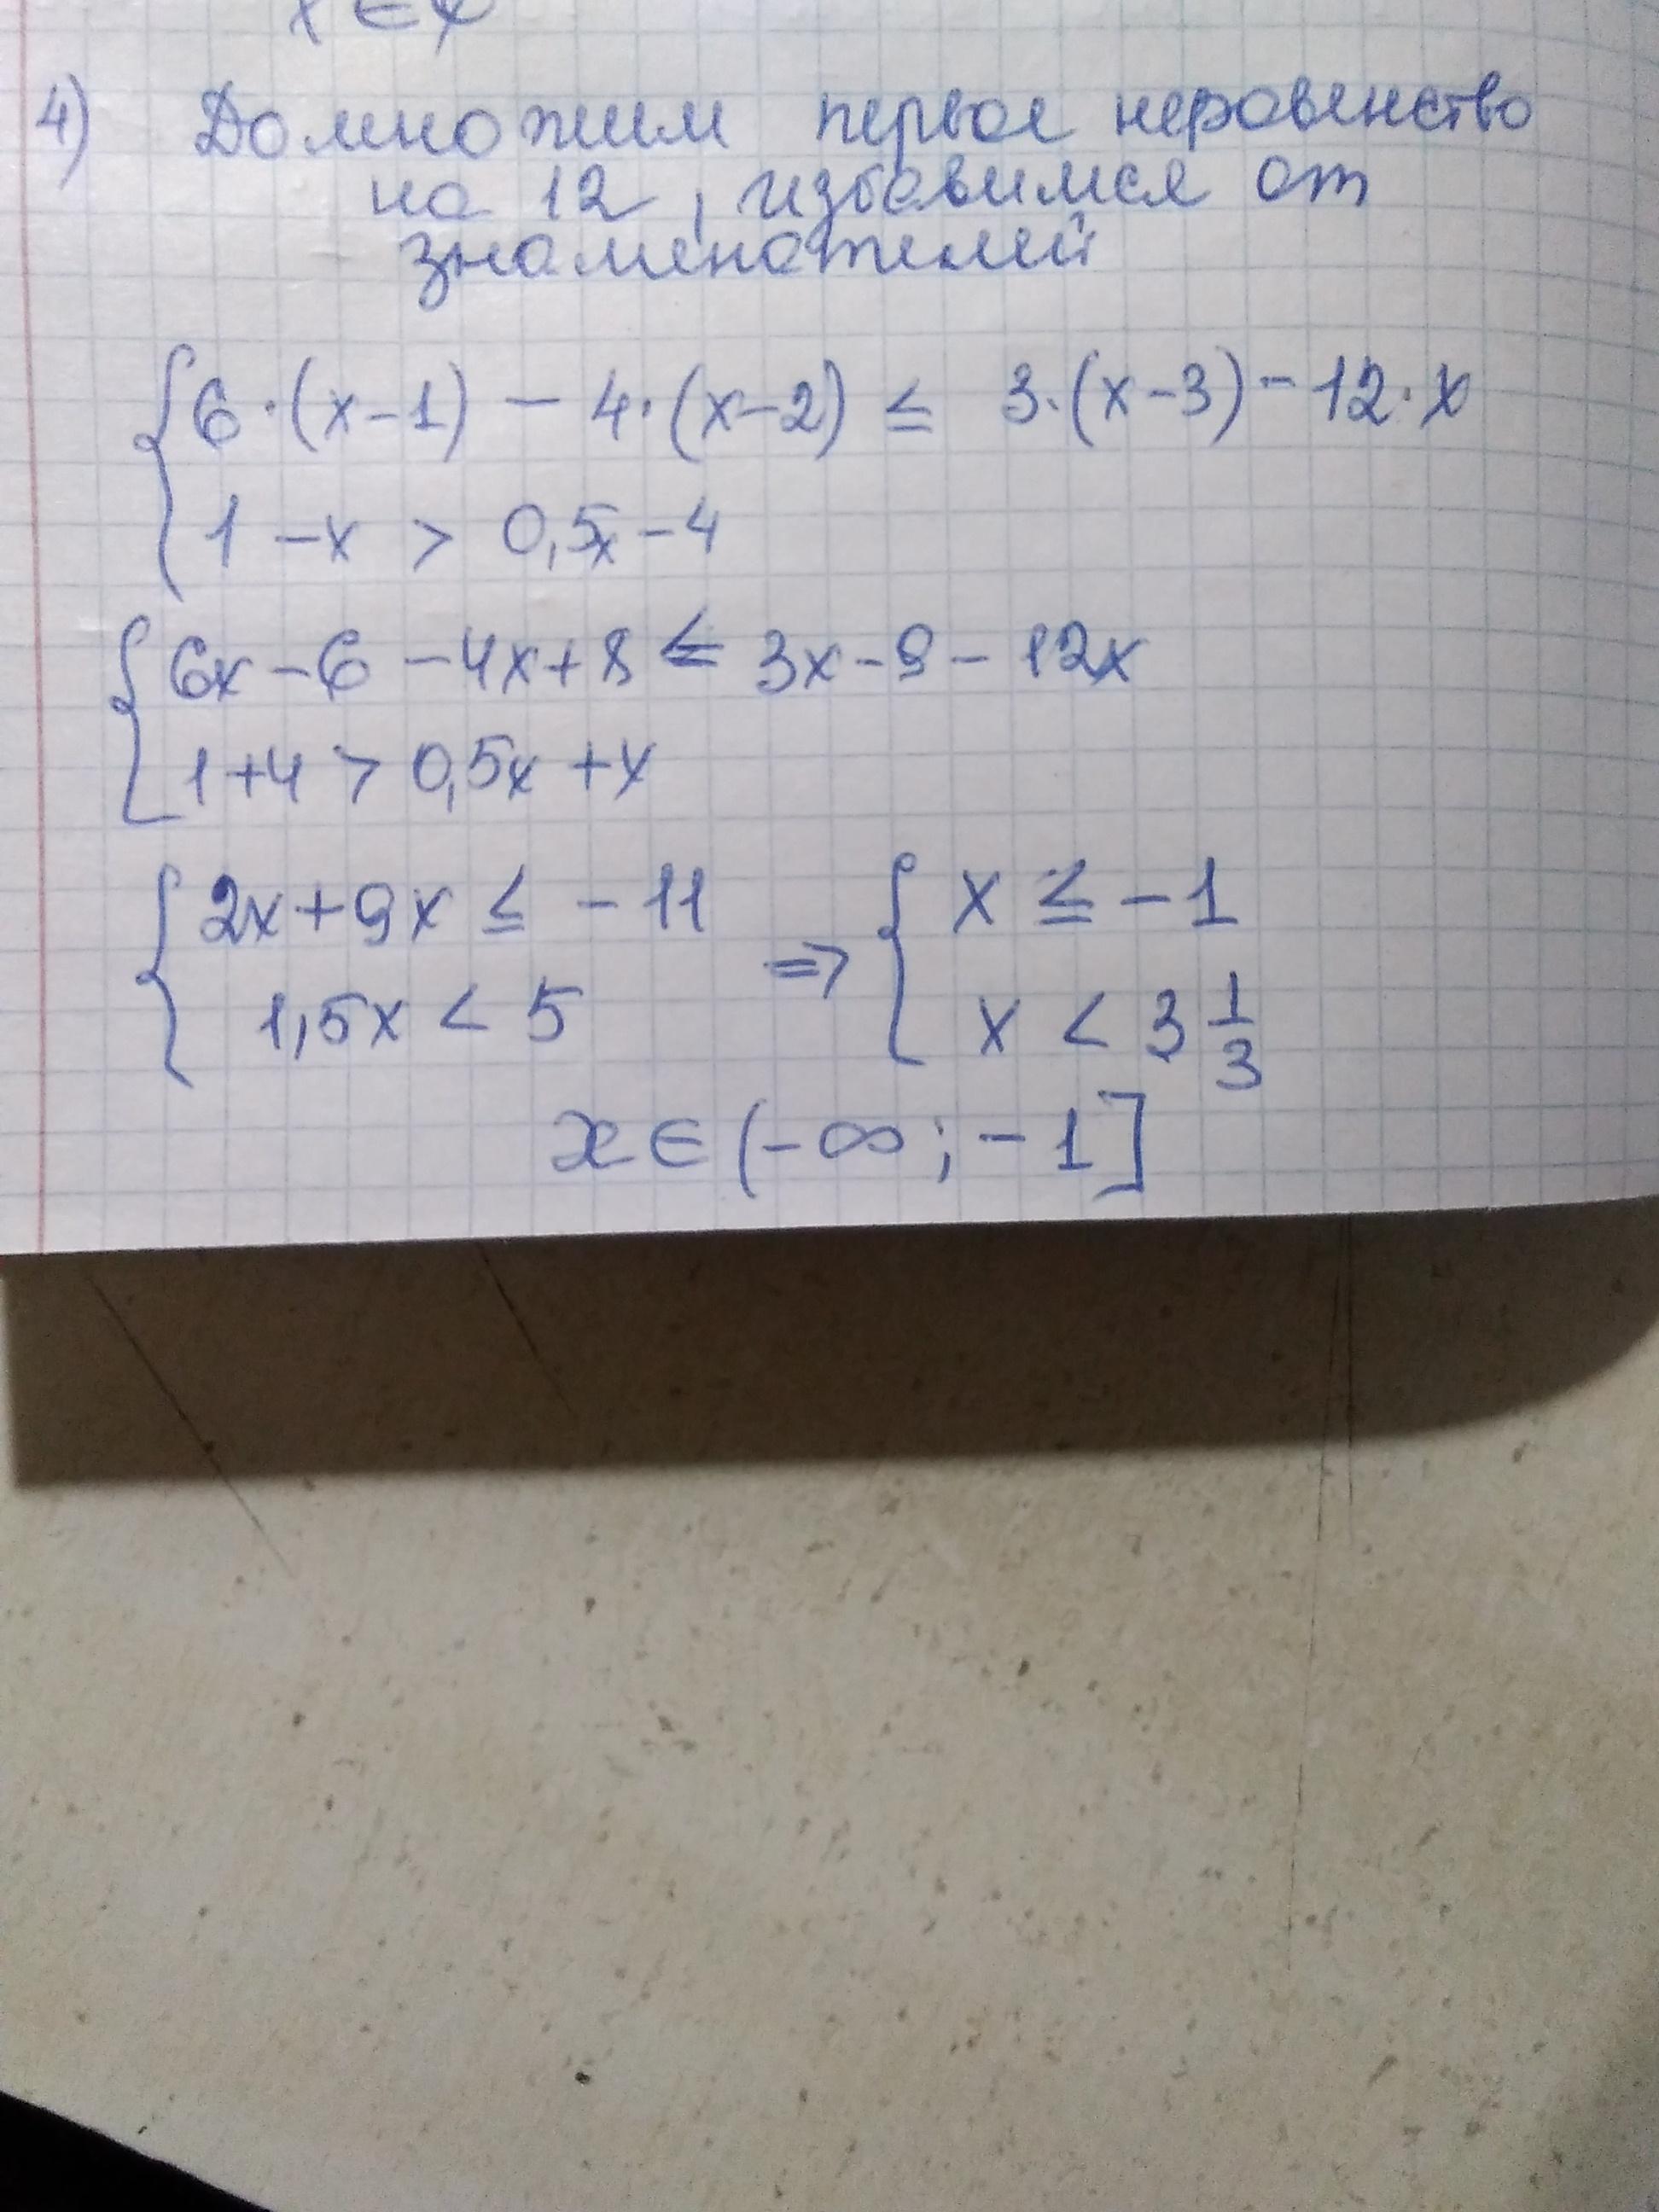 x ∈ 
4) Домножим первое неравенство
на 12, избавимся от
знаменателей
{ 6·(x-1) - 4·(x-2) ≤ 3·(x-3) - 12·x
1 - x > 0,5x - 4
{ 6x - 6 - 4x + 8 ≤ 3x - 9 - 12x
1 + 4 > 0,5x + x
{ 2x + 9x ≤ - 11 ⇒ { x ≤ - 1
1,5x < 5 x < 3 1/3
x ∈ (-∞; -1]